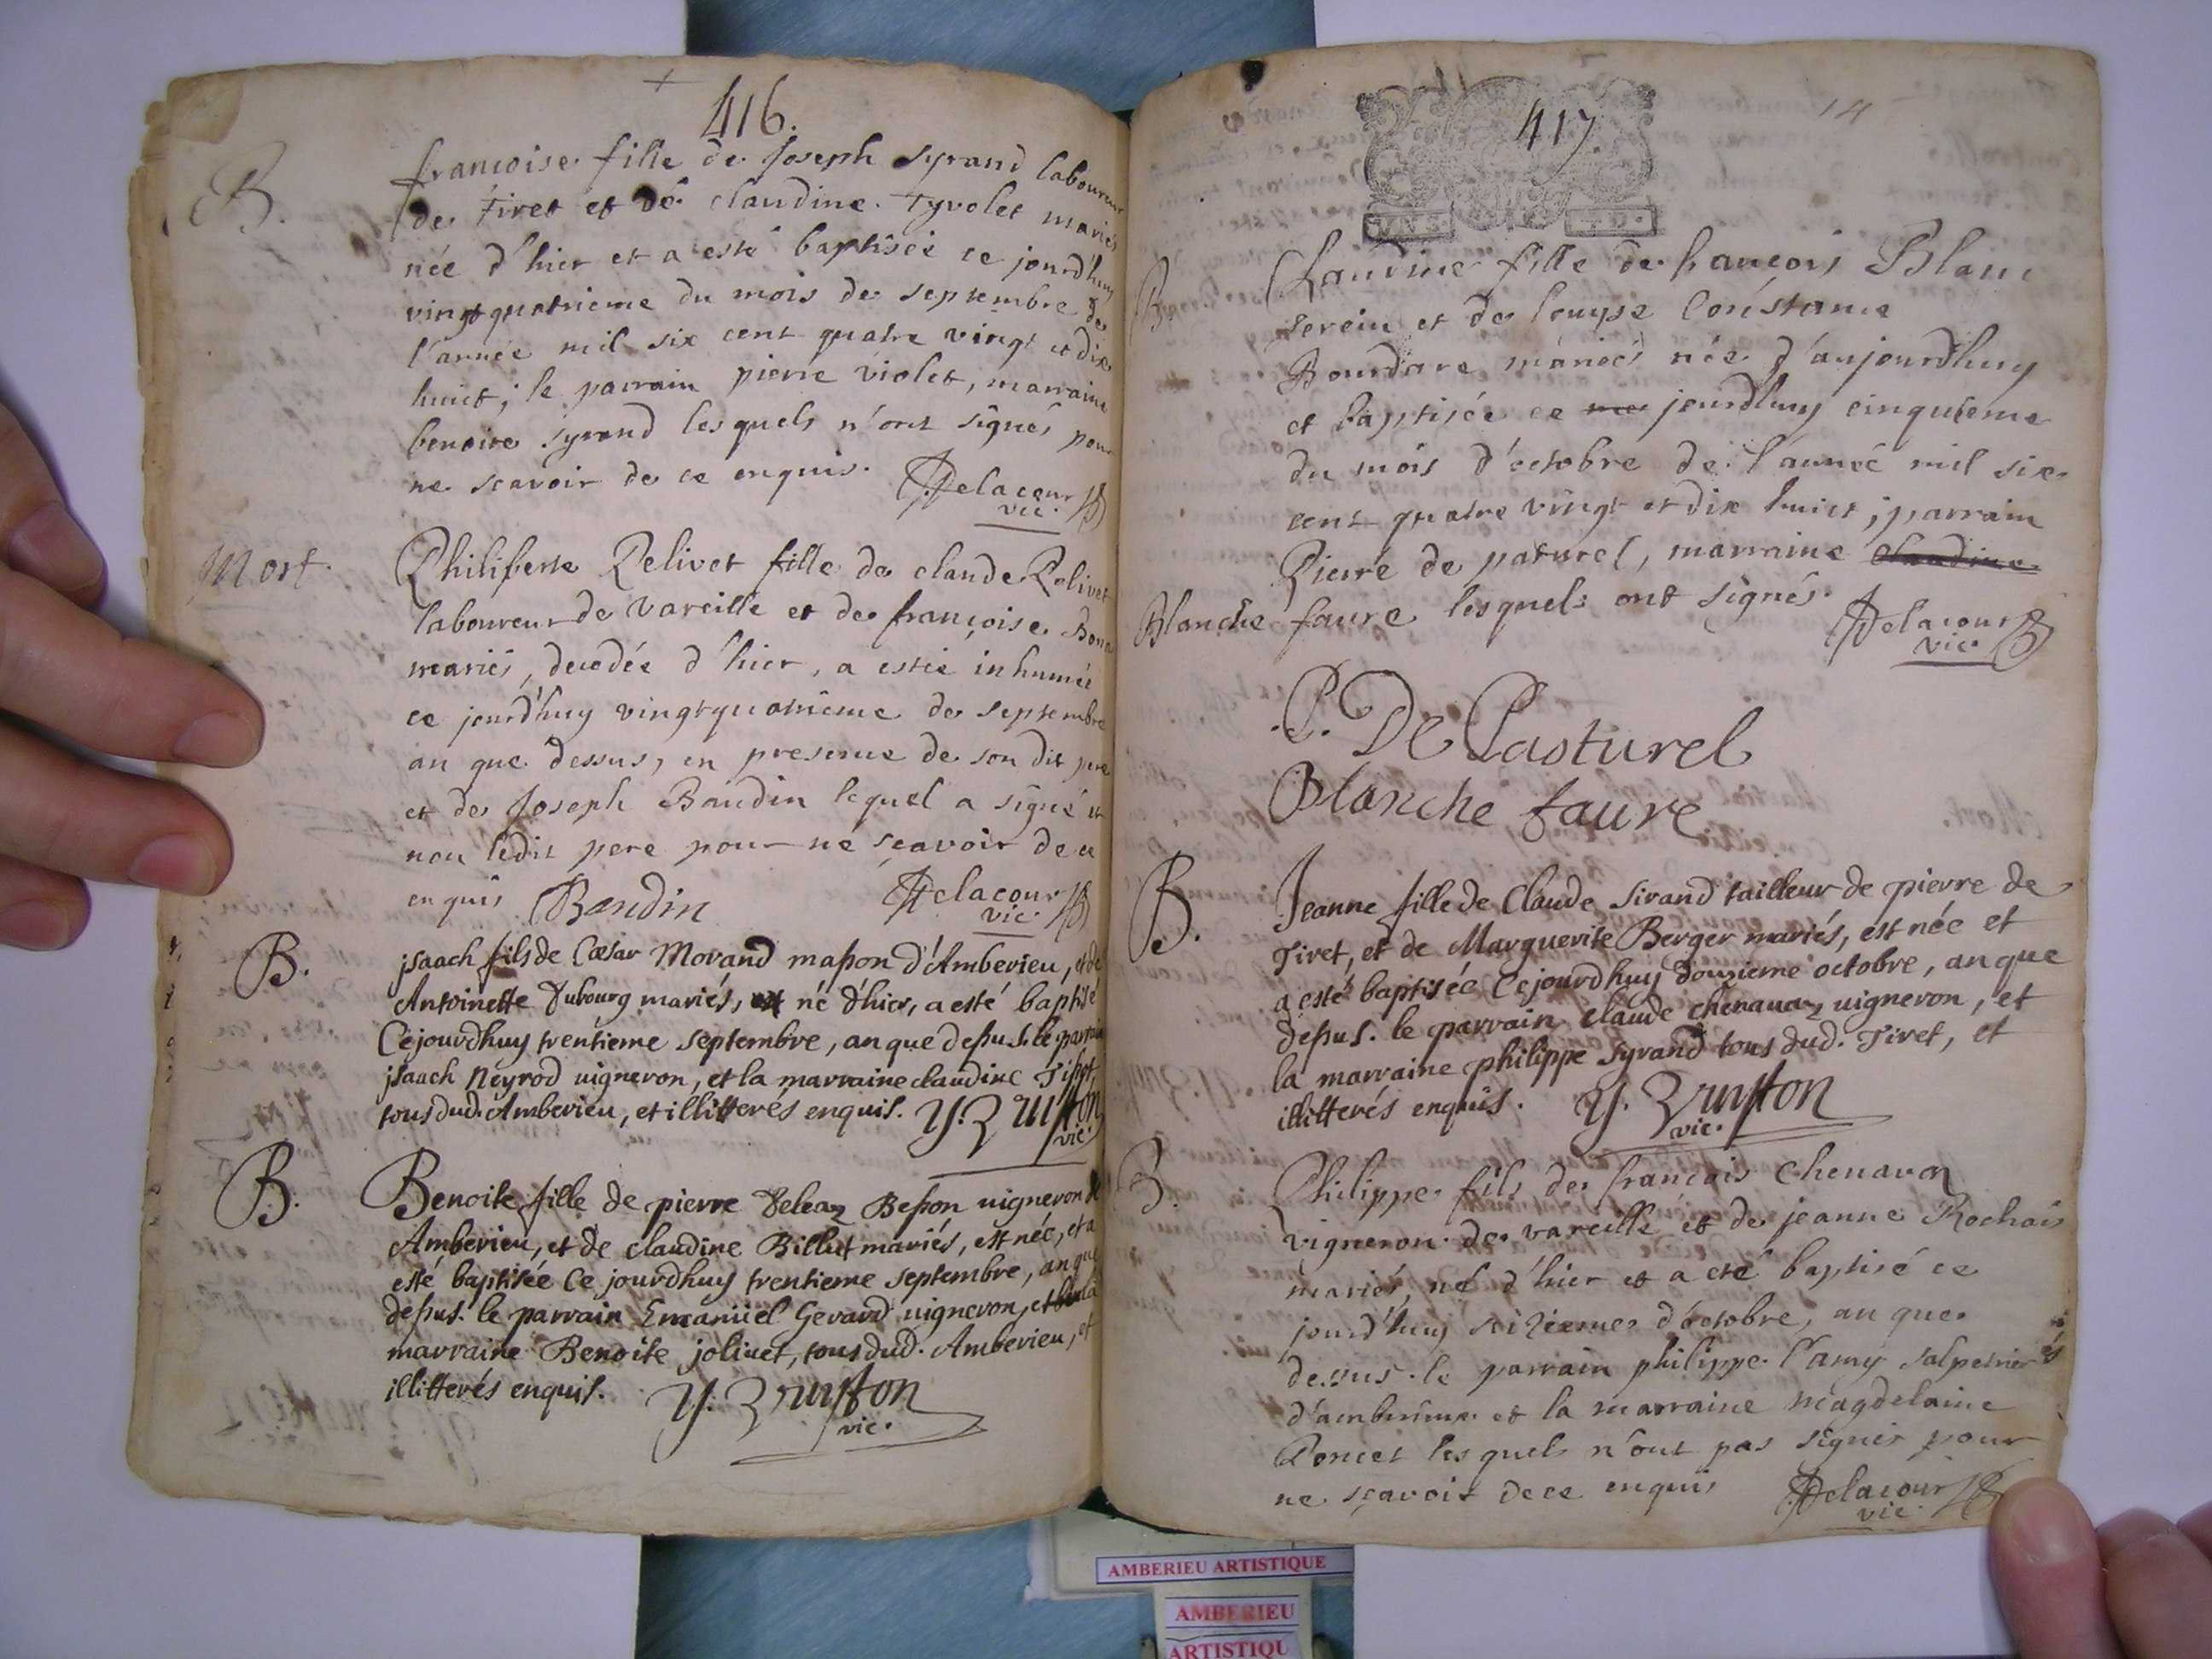 416.
B.
francoise fille de Joseph Syrand laboureur
de Tiret et de claudine Tyvolet mariés
née d'hier et a esté baptisée ce jourdhuy
vingtquatrieme du mois de septembre de
l'année mil six cent quatre vingt et dix
huict; le parrain pierre violet, marraine
benoite syrand lesquels n'ont signés pour
ne scavoir de ce enquis. Delacour
vic.
Mort.
Philiberte Pelivet fille de claude Pelivet
laboureur de Vareille et de françoise
mariés, decedée d'hier, a estée inhumée
ce jourd'huy vingtquatrieme de septembre
an que dessus, en presence de son dit pere
et de Joseph Baudin lequel a signé et
non ledit pere pour ne sçavoir de ce
enquis Baudin Delacour
vic.
B.
jsaach fils de Cæsar Morand masson d'Amberieu, et de
Antoinette Dubourg mariés, né d'hier, a esté baptisé
Cejourdhuy trentieme septembre, an que dessus. le parrain
jsaach Neyrod uigneron, et la marraine claudine Tissot,
tous dud. Amberieu, et illitterés enquis.
vic.
B.
Benoite fille de pierre Deleaz Besson uigneron de
Amberieu, et de claudine Billut mariés, est née, et a
esté baptisée Ce jourdhuy trentieme septembre, an que
dessus. le parrain Emanüel Gerard uigneron, et la
marraine Benoite joliuet, tous dud. Amberieu, et
illitterés enquis.
vic.
417.
14
B.
Claudine fille de francois Blanc
serein et de louyse Constance
Bourdare mariés née d'aujourdhuy
et baptisée ce jourdhuy cinquieme
du mois d'octobre de l'année mil six
cent quatre vingt et dix huict; parrain
Pierre de paturel, marraine claudine
Blanche faure lesquels ont signés.
Delacour
vic.
P. De Pasturel
Blanche faure
B.
Jeanne fille de Claude Sirand tailleur de pierre de
Tiret, et de Marguerite Berger mariés, est née et
a esté baptisée Cejourdhuy douzieme octobre, an que
dessus. le parrain claude chenauaz uigneron, et
la marraine philippe Syrand tous dud. Tiret, et
illitterés enquis.
vic.
B.
Philippe fils de francois Chenavaz
vigneron de vareille et de jeanne Rochais
mariés, né d'hier et a eté baptisé ce
jourd'huy seizieme d'octobre, an que
dessus. le parrain philippe l'amy salpetrier
d'amberieu et la marraine magdelaine
Poncet lesquels n'ont pas signés pour
ne sçavoir de ce enquis Delacour
vic.
AMBERIEU ARTISTIQUE
AMBERIEU
ARTISTIQU